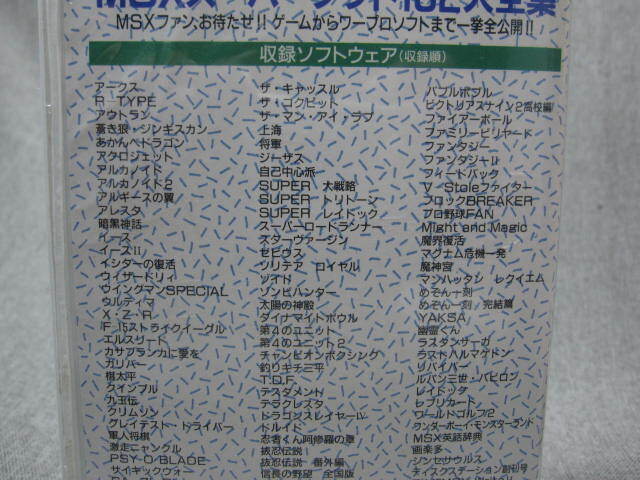 MSXファン、お待たせ!! ゲームからワープロソフトまで一挙全公開!!
収録ソフトウェア(収録順)
アークス
R・TYPE
アウトラン
蒼き狼・ジンギスカン
あかんべドラゴン
アクロジェット
アルカノイド
アルカノイド2
アルギースの翼
アレスタ
暗黒神話
イース
イースII
イシターの復活
ウィザードリィ
ウイングマンSPECIAL
ウルティマ
X・Z・R
F-15ストライクイーグル
エルスリード
カサブランカに愛を
ガリバー
棋太平
クインプル
九玉伝
クリムゾン
グレイテスト・ドライバー
軍人将棋
激走ニャンクル
PSY-O-BLADE
サイキックウォー
ザ・キャッスル
ザ・コクピット
ザ・マン・アイ・ラブ
上海
将軍
ジーザス
自己中心派
SUPER 大戦略
SUPER トリトーン
SUPER レイドック
スーパーロードランナー
スターヴァージン
ゼビウス
ソリテア ロイヤル
ゾイド
ゾンビハンター
太陽の神殿
ダイナマイトボウル
第4のユニット
第4のユニット2
チャンピオンボクシング
釣りキチ三平
T.D.F.
テスタメント
テラクレスタ
ドラゴンスレイヤーIV
ドルイド
忍者くん阿修羅の章
抜忍伝説
抜忍伝説 番外編
信長の野望 全国版
バブルボブル
ビクトリアスナイン2(高校編)
ファイアーボール
ファミリービリヤード
ファンタジー
ファンタジーII
フィードバック
V・Staleファイター
ブロックBREAKER
プロ野球FAN
Might and Magic
魔界復活
マグナム危機一発
魔神宮
マンハッタン レクイエム
めぞん一刻
めぞん一刻 完結篇
YAKSA
幽霊くん
ラスタンサーガ
ラストハルマゲドン
リバイバー
ルパン三世・バビロン
レイドック
レプリカート
ワールドゴルフ2
ワンダーボーイ・モンスターランド
MSX英語辞典
画楽多〜
ジンセサウルス
ディスクステーション創刊号